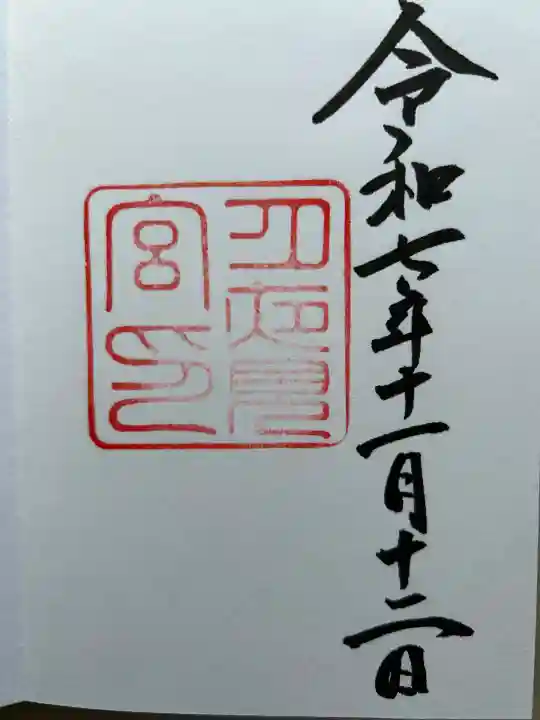 令和七年十一月十二日
月夜見
宮印